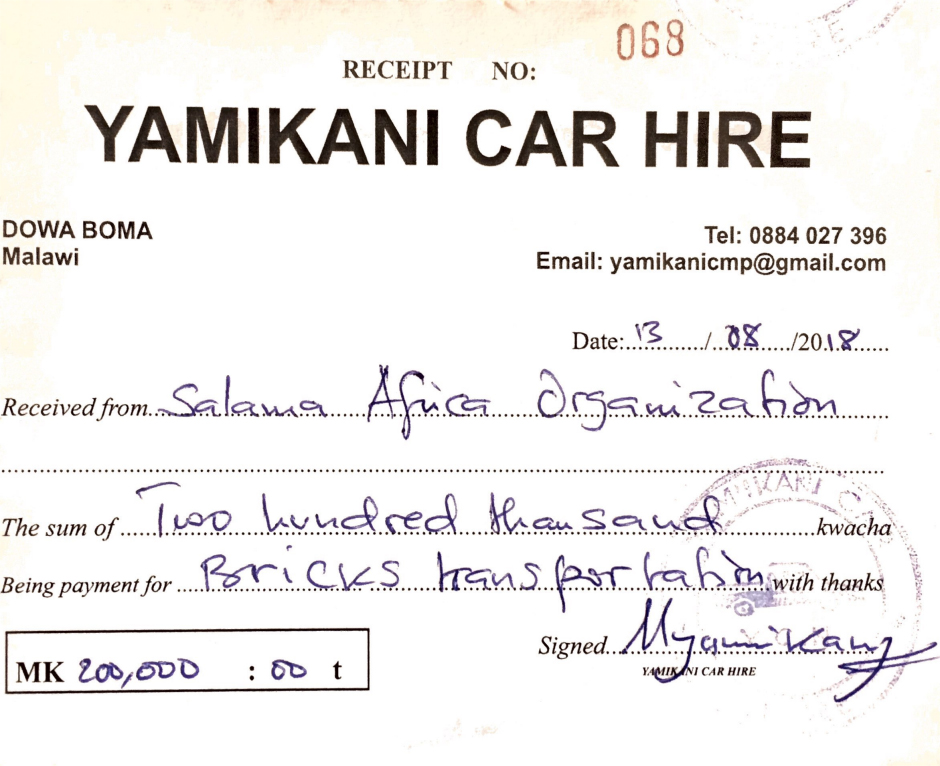 068
RECEIPT NO:
YAMIKANI CAR HIRE
DOWA BOMA
Malawi
Tel: 0884 027 396
Email: yamikanicmp@gmail.com
Date:.13......./..08...../2018......
Received from..Salama Africa Organization
The sum of ..Two hundred thousand kwacha
Being payment for ..Bricks transportation with thanks
MK 200,000 : 00 t
Signed..Myamikani
YAMIKANI CAR HIRE